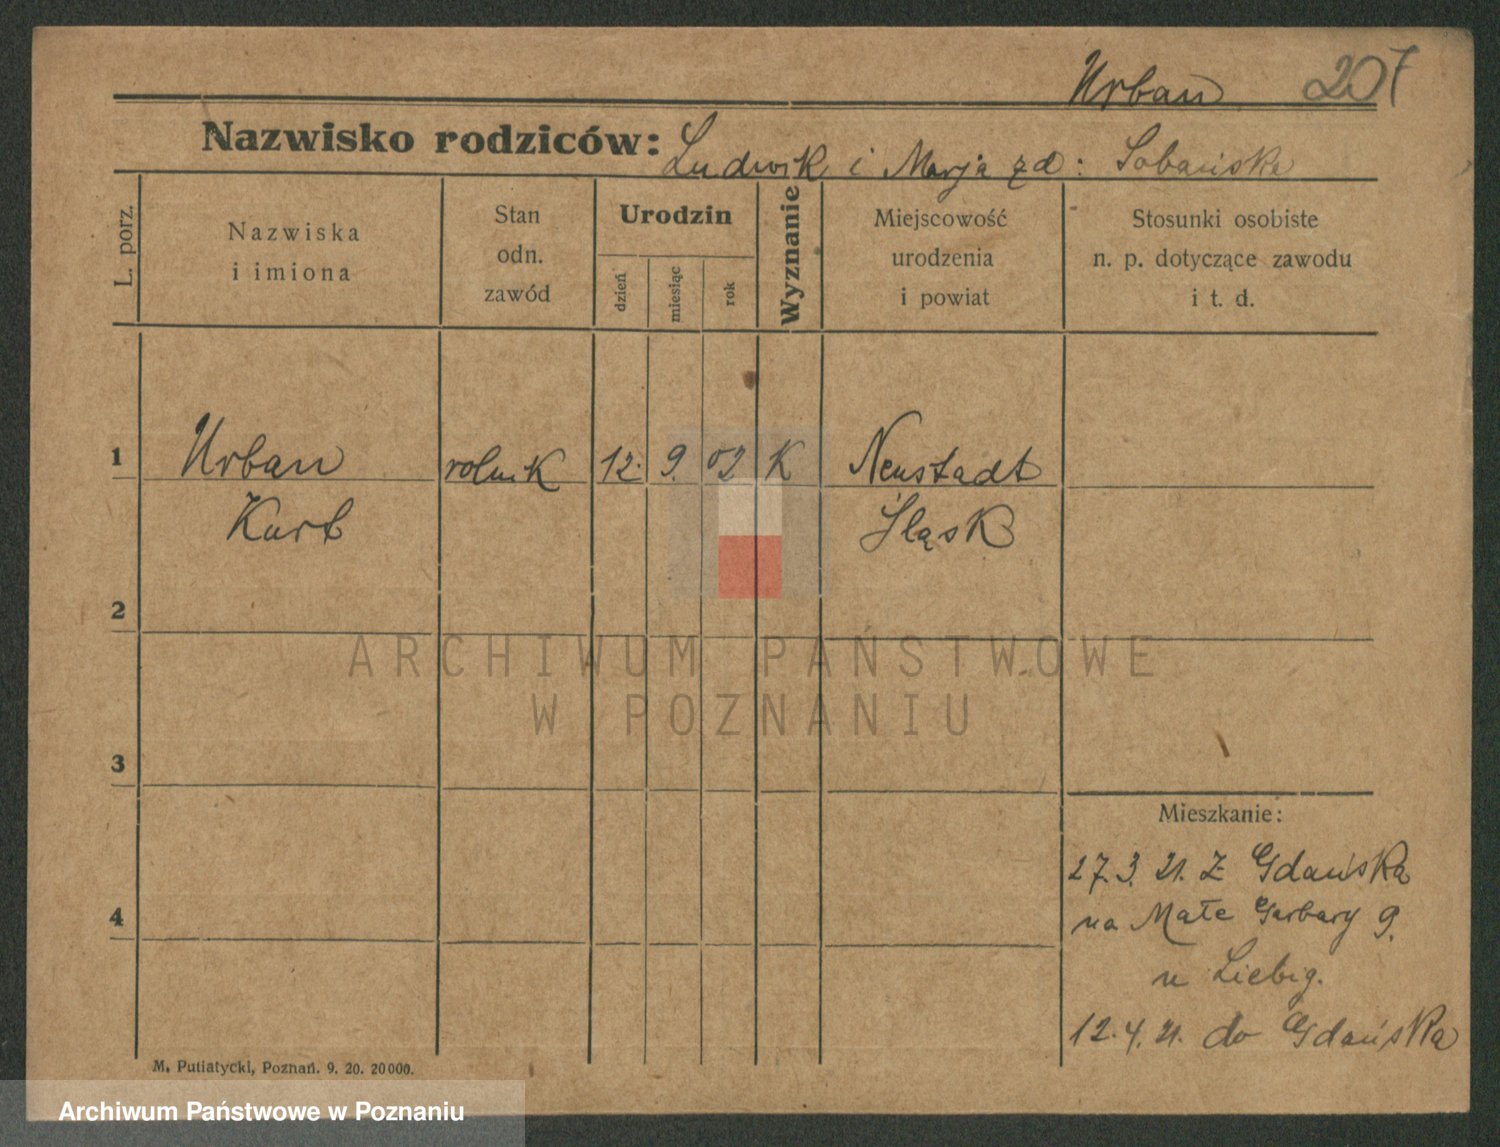 Urban 207
Nazwisko rodziców: Ludwik i Marja zd: Sobańska
L. porz.
Nazwiska
i imiona
Stan
odn.
zawód
Urodzin
dzień
miesiąc
rok
Wyznanie
Miejscowość
urodzenia
i powiat
Stosunki osobiste
n. p. dotyczące zawodu
i t. d.
1 Urban rolnik 12. 9. 02 K Neustadt
Kurt Śląsk
2
ARCHIWUM PAŃSTWOWE
W POZNANIU
3
Mieszkanie:
27.3.21. z Gdańska
4
na Małe Garbary 9.
u Liebig.
12.4.21. do Gdańska
M. Putiatycki, Poznań. 9. 20. 20000.
Archiwum Państwowe w Poznaniu